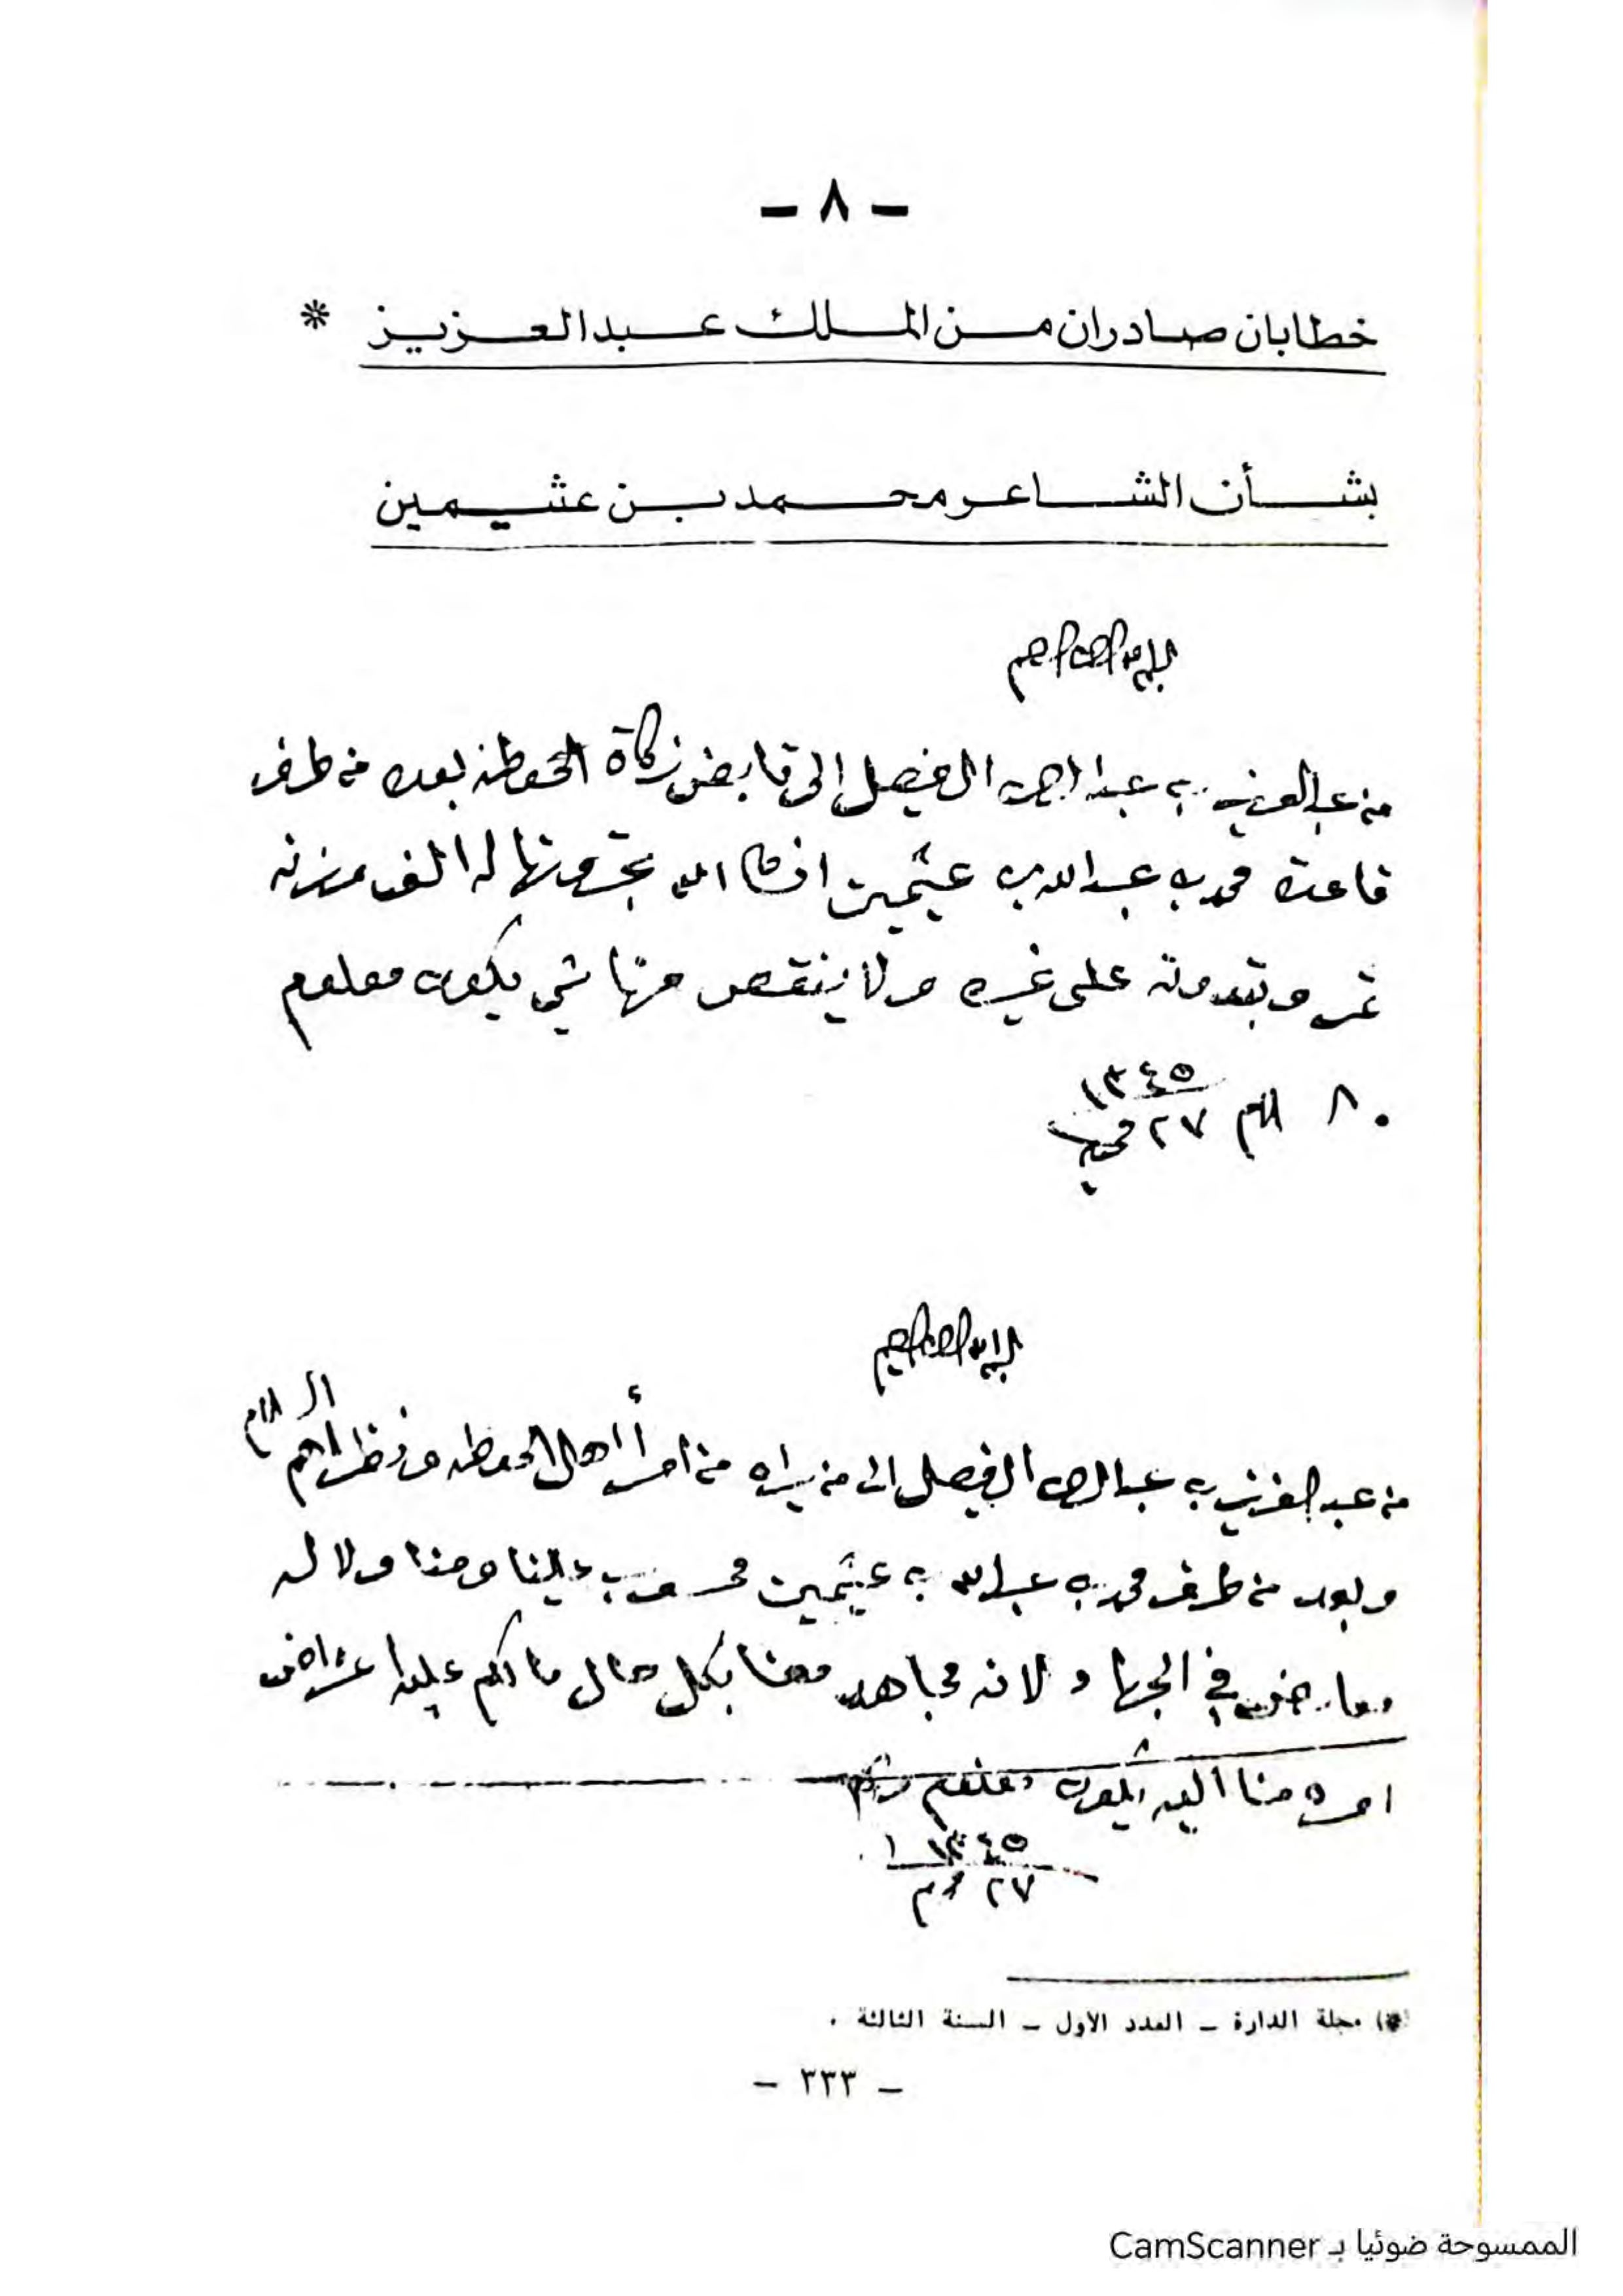 - ٨ -
خطابان صادران من الملك عبد العزيز *
بشأن الشاعر محمد بن عثيمين
بسم الله الرحمن الرحيم
من عبد العزيز بن عبد الرحمن الفيصل إلى قابض زكاة الحوطة بعده من طرف
قاعدة محمد بن عبد الله بن عثيمين انشا الله تجرونها له الف وزنه
تمر وتبدونه على غيره ولا ينقص منها شي يكون معلوم
٨٠ السلام ١٣٤٥
٢٧ محرم
بسم الله الرحمن الرحيم
السلام
من عبد العزيز بن عبد الرحمن الفيصل الى من يراه من امرأ اهل الحوطه ونظراهم
وبعد من طرف محمد بن عبد الله بن عثيمين محسوب علينا ومنا ولا له
معارض في الجهاد لانه مجاهد معنا بكل حال مالكم عليه اعتراض
امره منا اليه يكون معلوم
١٣٤٥
٢٧ محرم
(*) مجلة الدارة - العدد الاول - السنة الثالثة .
- ٣٣٣ -
الممسوحة ضوئيا بـ CamScanner